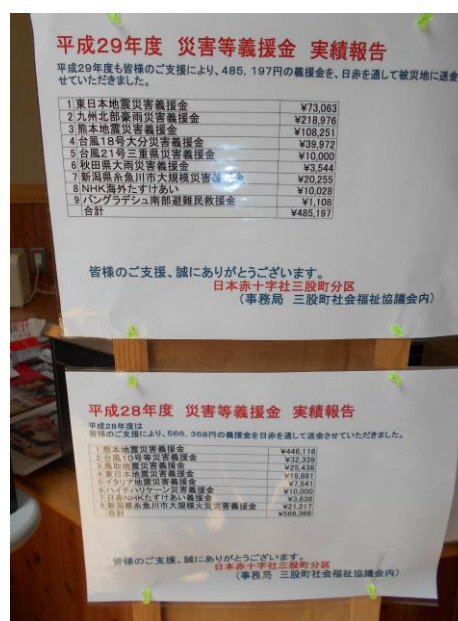 平成29年度 災害等義援金 実績報告
平成29年度も皆様のご支援により、485,197円の義援金を、日赤を通して被災地に送金
せていただきました。
1 東日本地震災害義援金 ¥73,063
2 九州北部豪雨災害義援金 ¥218,976
3 熊本地震災害義援金 ¥108,251
4 台風18号大分災害義援金 ¥39,972
5 台風21号三重県災害義援金 ¥10,000
6 秋田県大雨災害義援金 ¥3,544
7 新潟県糸魚川市大規模災害義援金 ¥20,255
8 NHK海外たすけあい ¥10,028
9 バングラデシュ南部避難民救援金 ¥1,108
合計 ¥485,197
皆様のご支援、誠にありがとうございます。
日本赤十字社三股町分区
(事務局 三股町社会福祉協議会内)
平成28年度 災害等義援金 実績報告
平成28年度は
皆様のご支援により、566,368円の義援金を日赤を通して送金させていただきました。
1 熊本地震災害義援金 ¥446,116
2 台風10号等災害義援金 ¥32,339
3 鳥取地震災害義援金 ¥25,436
4 東日本地震災害義援金 ¥19,881
5 イタリア地震災害義援金 ¥7,541
6 ハイチハリケーン災害義援金 ¥10,000
7 日赤NHKたすけあい義援金 ¥3,838
8 新潟県糸魚川市大規模火災災害義援金 ¥21,217
合計 ¥566,368
皆様のご支援、誠にありがとうございます。
日本赤十字社三股町分区
(事務局 三股町社会福祉協議会内)